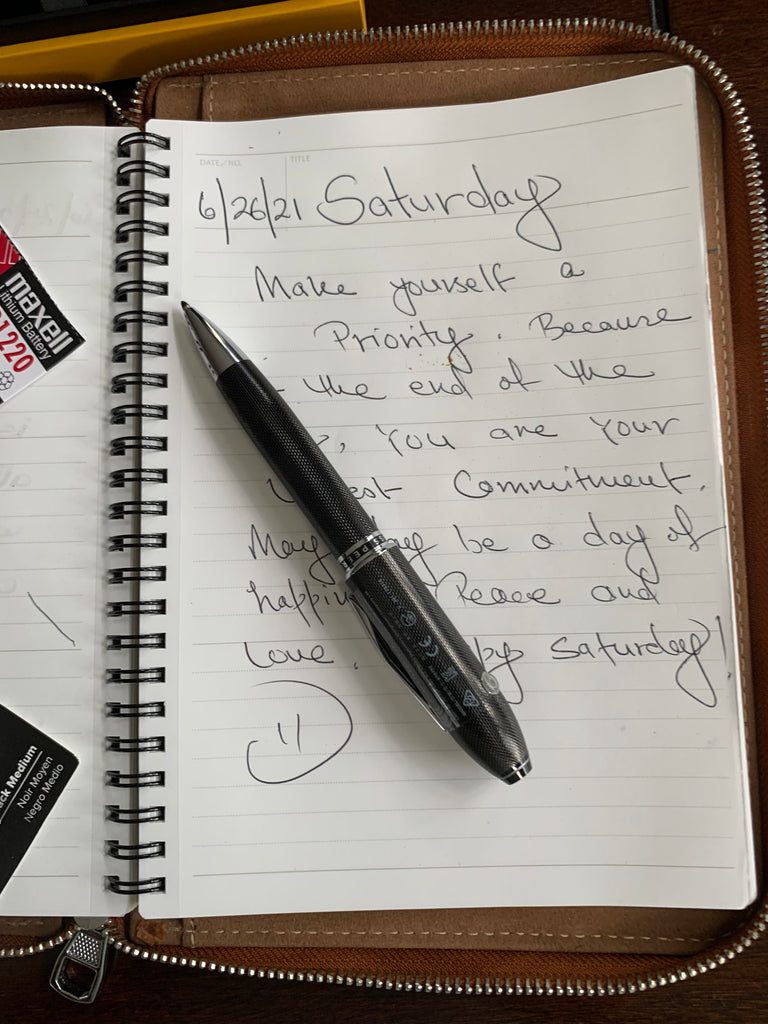 DATE/NO.
TITLE
6/26/21 Saturday
Make yourself a
Priority. Because
the end of the
, You are Your
est Commitment.
May be a day of
happin Peace and
Love. py Saturday!
maxell
Lithium Battery
1220
ck Medium
Noir Moyen
Negro Medio
CE